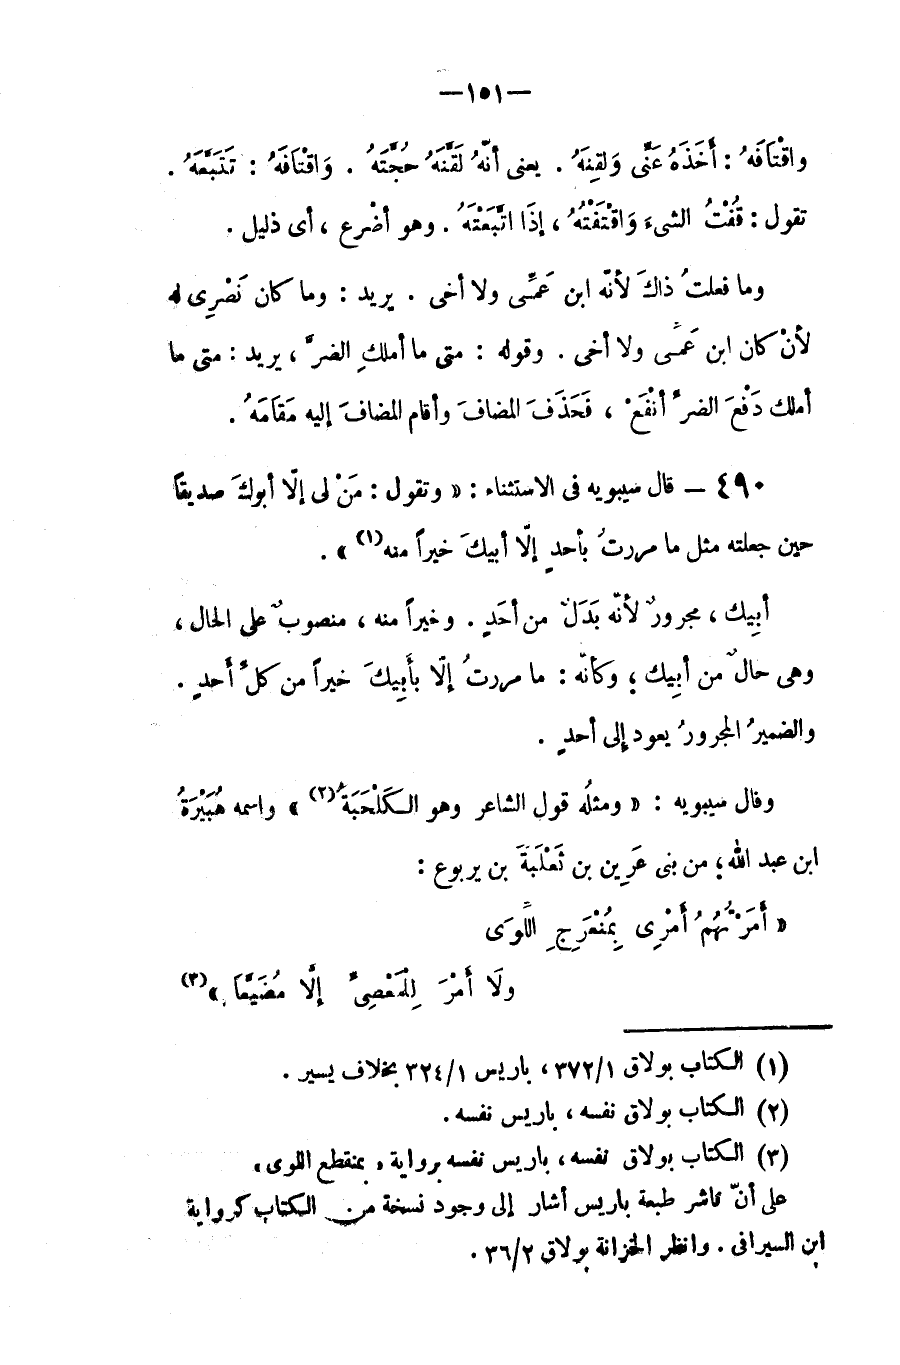 —١٥١—
واقْتافَهُ : أَخَذَهُ عَنِّى وَلقِنَهُ . يعنى أنّهُ لَقَّنَهُ حُجَّتَهُ . وَاقْتَافَهُ : تَتَبَّعَهُ .
تقول : قُفْتُ الشىءَ وَاقْتَفْتُهُ ، إذَا اتَّبَعْتَهُ . وهو أضْرع ، أى ذليل .
وما فعلتُ ذاكَ لأنّه ابن عَمِّى ولا أخى . يريد : وما كان نَصْرِى له
لأنْ كان ابن عَمِّى ولا أخى . وقوله : متى ما أملكِ الضرَّ ، يريد : متى ما
أملك دَفْعَ الضرِّ أنْفَعْ ، فَحَذَفَ المضافَ وأقام المضافَ إليه مَقَامَهُ .
٤٩٠ — قال سيبويه فى الاستثناء : « وتقول : مَنْ لى إلّا أبوكَ صديقاً
حين جعلته مثل ما مررتُ بأحدٍ إلّا أبيكَ خيراً منه(١) » .
أبِيك ، مجرورٌ لأنّه بَدَلٌ من أحَدٍ . وخيراً منه ، منصوبٌ على الحال ،
وهى حالٌ من أبِيك ؛ وكأنّه : ما مررتُ إلّا بأَبِيكَ خيراً من كلِّ أَحدٍ .
والضميرُ المجرورُ يعود إلى أحدٍ .
وقال سيبويه : « ومثلُه قول الشاعر وهو الكَلْحَبَةُ(٢) » واسمه هُبَيْرَةُ
ابن عبد الله ؛ من بنى عَرِين بن ثَعْلَبَةَ بن يربوع :
« أَمَرْتُهُمُ أَمْرِى بِمُنْعَرِجِ اللِّوَى
ولَا أَمْرَ لِلْمَعْصِىِّ إلَّا مُضَيَّعَا »(٣)
(١) الكتاب بولاق ٣٧٢/١ ، باريس ٣٢٤/١ بخلاف يسير .
(٢) الكتاب بولاق نفسه ، باريس نفسه .
(٣) الكتاب بولاق نفسه ، باريس نفسه برواية « بمنقطع اللوى »
على أنّ ناشر طبعة باريس أشار إلى وجود نسخة من الكتاب كرواية
ابن السيرافى . وانظر الخزانة بولاق ٣٦/٢ .